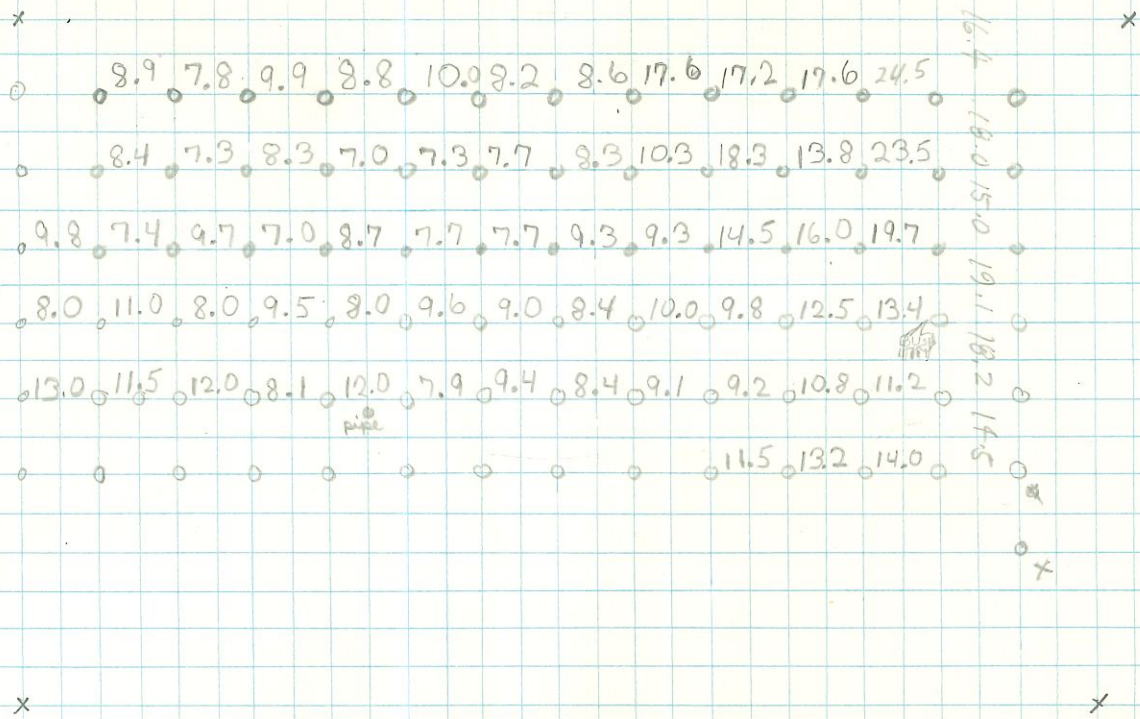 8.9 7.8 9.9 8.8 10.9 8.2 8.6 17.6 17.2 17.6 24.5
8.4 7.3 8.3 7.0 7.3 7.7 8.3 10.3 18.3 13.8 23.5
9.8 7.4 9.7 7.0 8.7 7.7 7.7 9.3 9.3 14.5 16.0 19.7
8.0 11.0 8.0 9.5 8.0 9.6 9.0 8.4 10.0 9.8 12.5 13.4
13.0 11.5 12.0 8.1 12.0 7.9 9.4 8.4 9.1 9.2 10.8 11.2
pipe
11.5 13.2 14.0
16.4 18.0 15.0 19.1 18.2 14.5